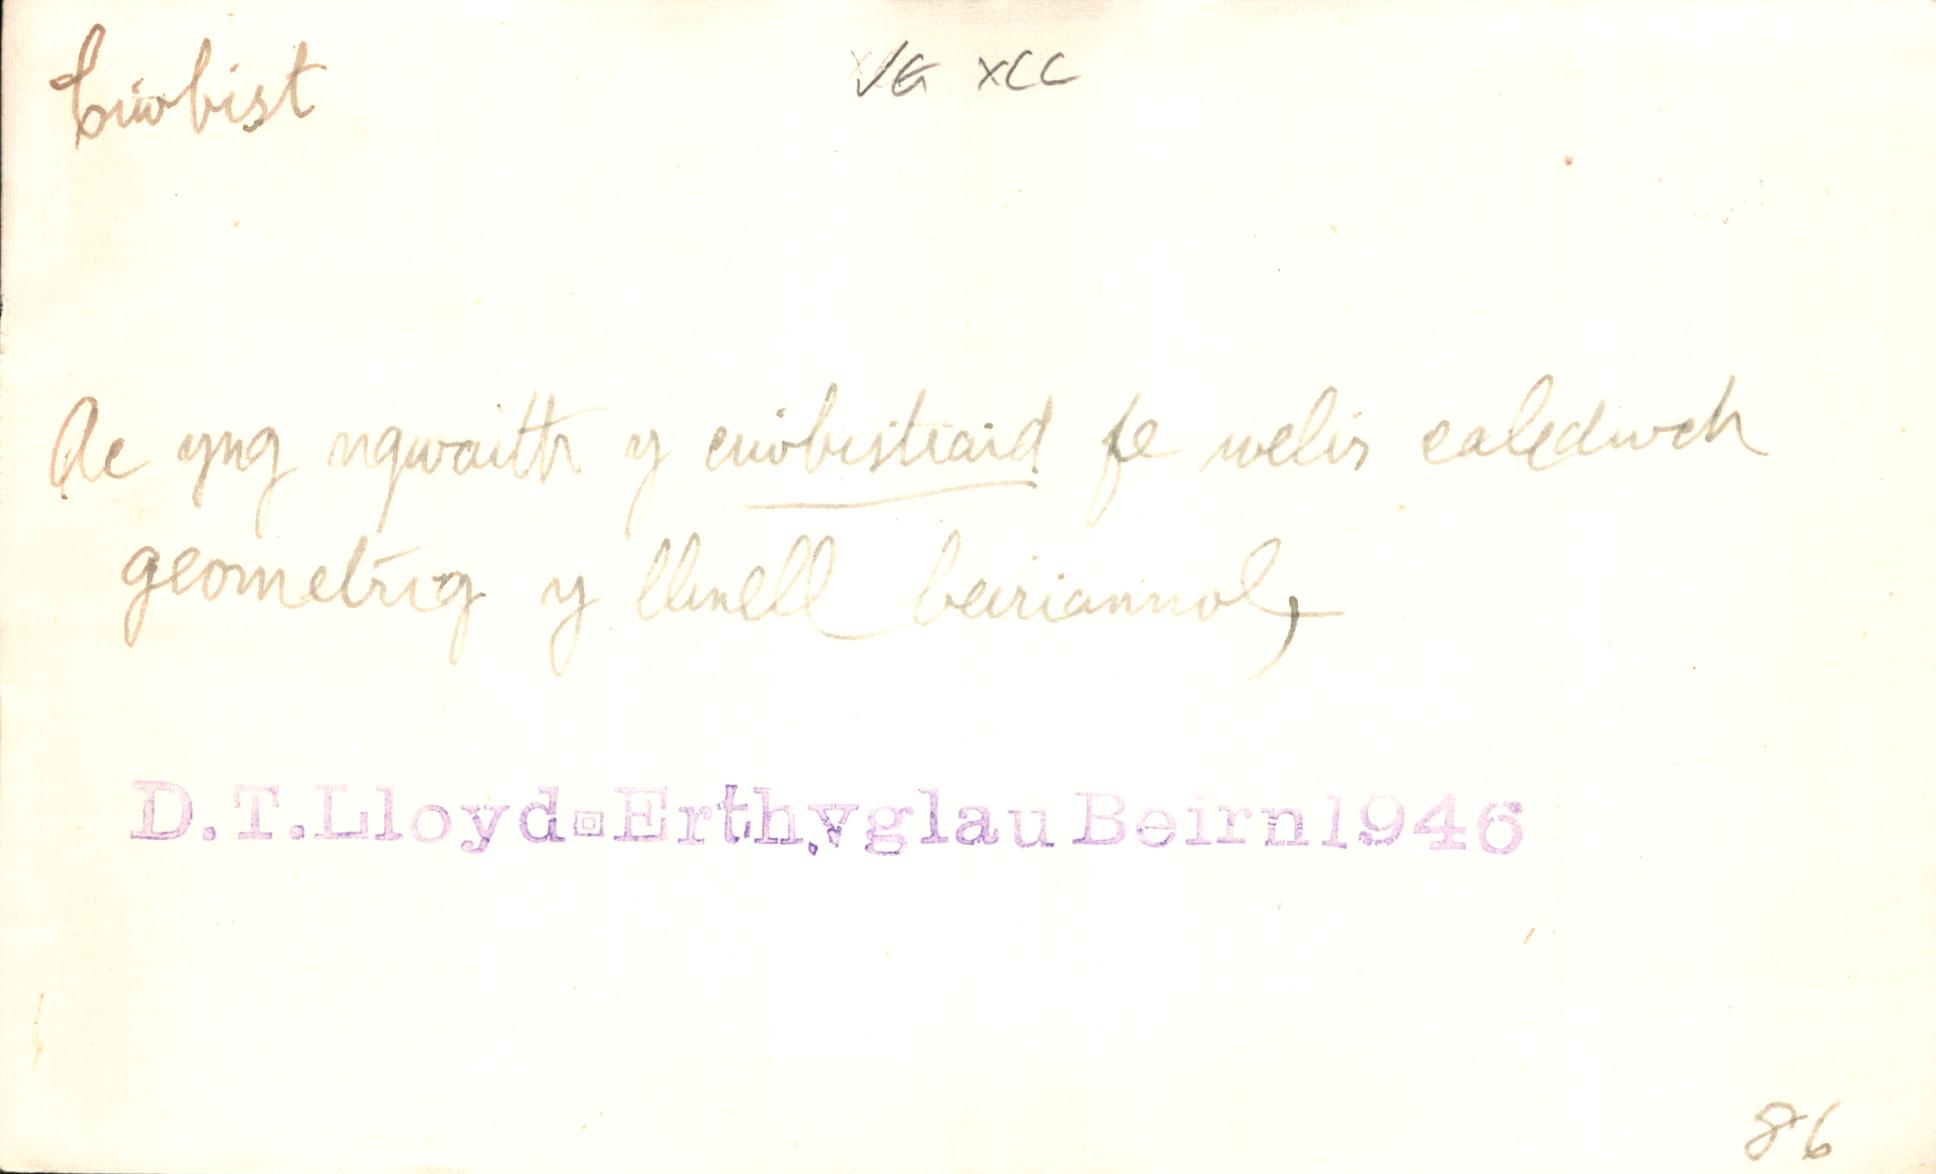 Ciwbist
√G xCC
Ac yng ngwaith y ciwbistiaid fe welir caledwch
geometrig y llinell beiriannol,
D.T.Lloyd Erthyglau Beirn1946
86